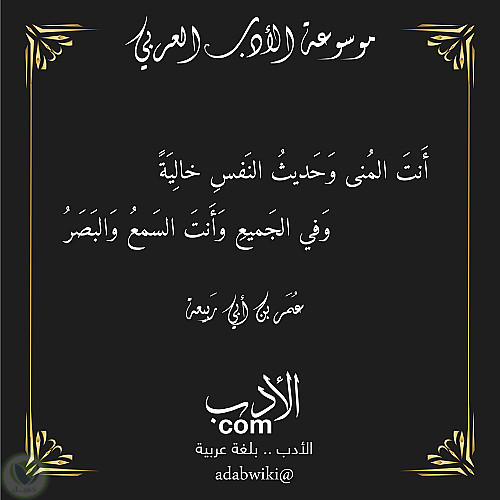 موسوعة الأدب العربي
أَنتَ المُنى وَحَديثُ النَفسِ خالِيَةً
وَفي الجَميعِ وَأَنتَ السَمعُ وَالبَصَرُ
عُمَر بن أبي رَبيعة
الأدب
com
الأدب .. بلغة عربية
adabwiki@